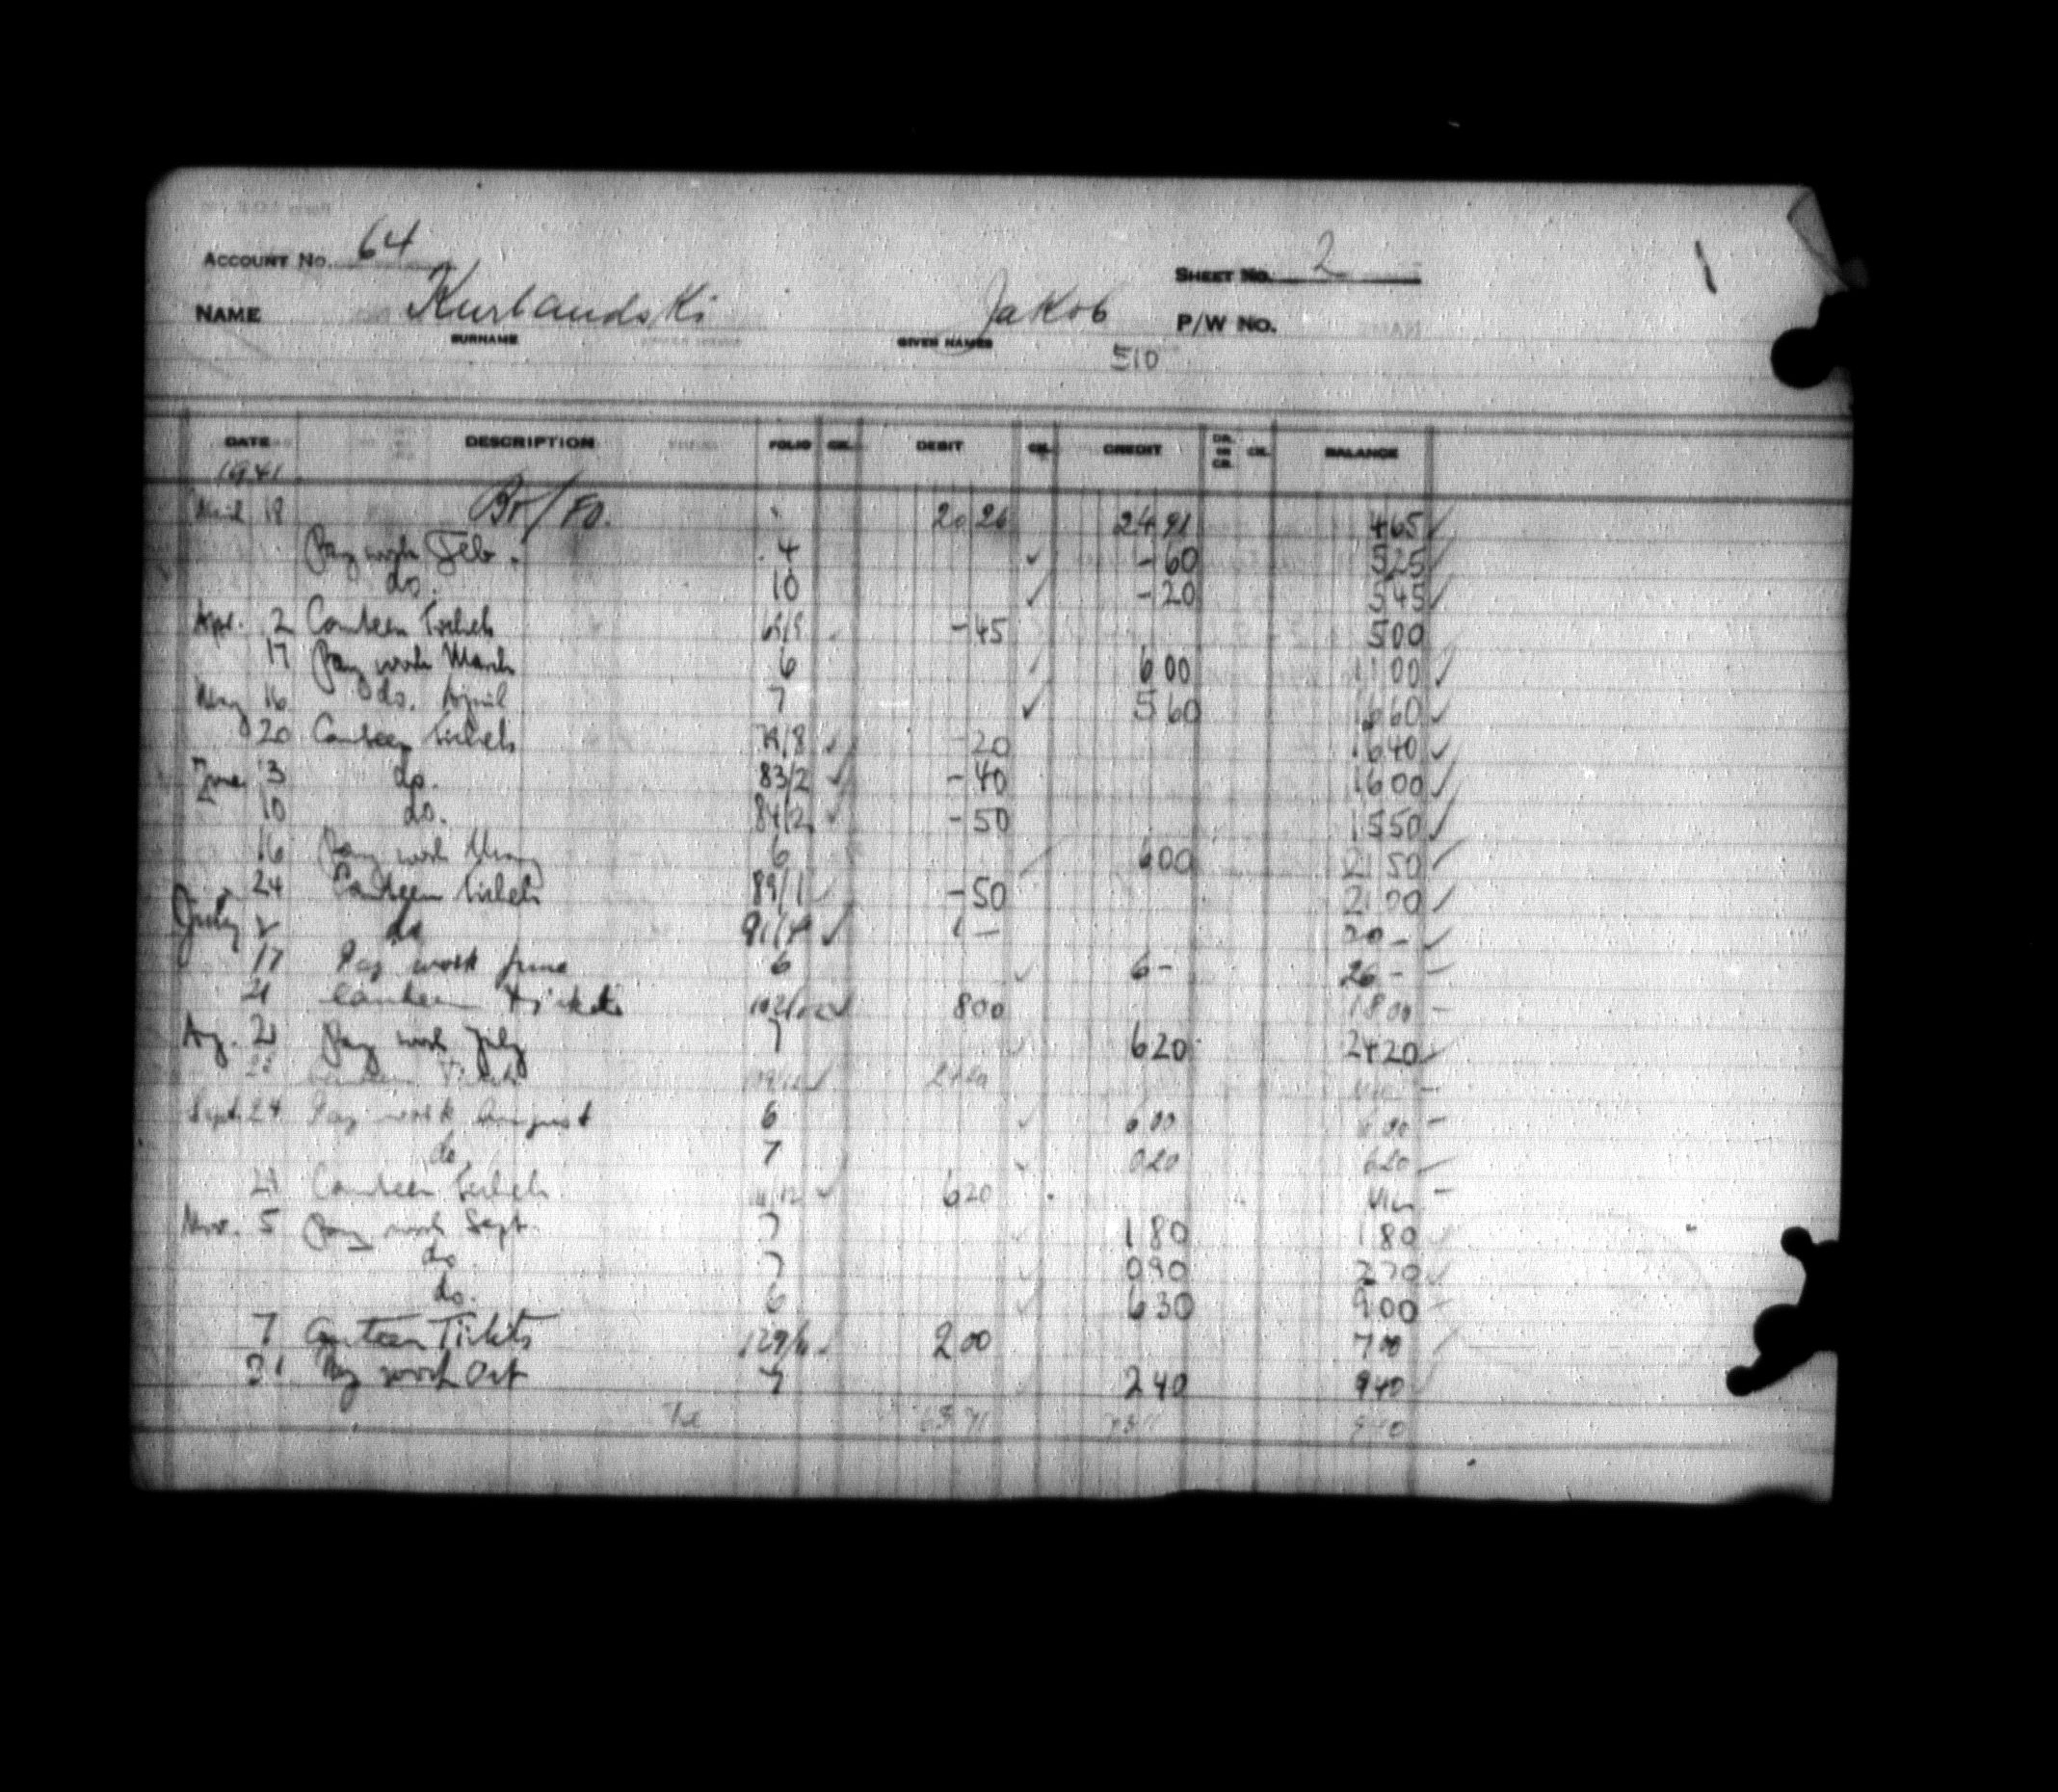 ACCOUNT No. 64
SHEET No. 2
NAME Kurlandski Jakob P/W No.
SURNAME GIVEN NAMES
510
DATE DESCRIPTION FOLIO CK. DEBIT CK. CREDIT DR. OR CR. CK. BALANCE
1941
18 20 26 24 91 4 65 ✓
Pay work Feb. 4 ✓ - 60 5 25 ✓
do. 10 ✓ - 20 5 45 ✓
Apr. 2 Canteen tickets - 45 5 00
17 Pay work March 6 ✓ 6 00 11 00 ✓
May 16 do. April 7 ✓ 5 60 16 60 ✓
20 Canteen tickets ✓ - 20 16 40 ✓
June 3 do. 83/2 ✓ - 40 16 00 ✓
10 do. 84/2 ✓ - 50 15 50 ✓
16 Pay work May 6 ✓ 6 00 21 50 ✓
24 Canteen tickets 89/1 ✓ - 50 21 00 ✓
July 2 do ✓ 1 - 20 - ✓
17 Pay work June 6 ✓ 6 - 26 - -
21 Canteen tickets ✓ 8 00 18 00 -
Aug. 21 Pay work July 7 ✓ 6 20 24 20 ✓
Canteen Tickets ✓ 24 20 -
Sept. 24 Pay work August 6 ✓ 6 00 6 00 -
do. 7 ✓ 0 20 6 20 -
Canteen tickets ✓ 6 20 Nil -
Nov. 5 Pay work Sept. 7 ✓ 1 80 1 80 ✓
do 7 ✓ 0 90 2 70 ✓
do. 6 ✓ 6 30 9 00 -
7 Canteen Tickets ✓ 2 00 7 00 ✓
Pay work Oct 7 2 40 9 40 ✓
63 71 73 11 9 40